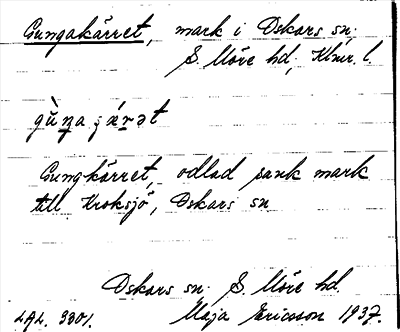 Gungakärret, mark i Oskars sn.
S. Möre hd, Klmr. l.
gùŋa ʒɛ́rət
Gungkärret, odlad sank mark
till Kroksjö, Oskars sn
Oskars sn. S. Möre hd.
LAL. 3301. Maja Ericsson 1937.